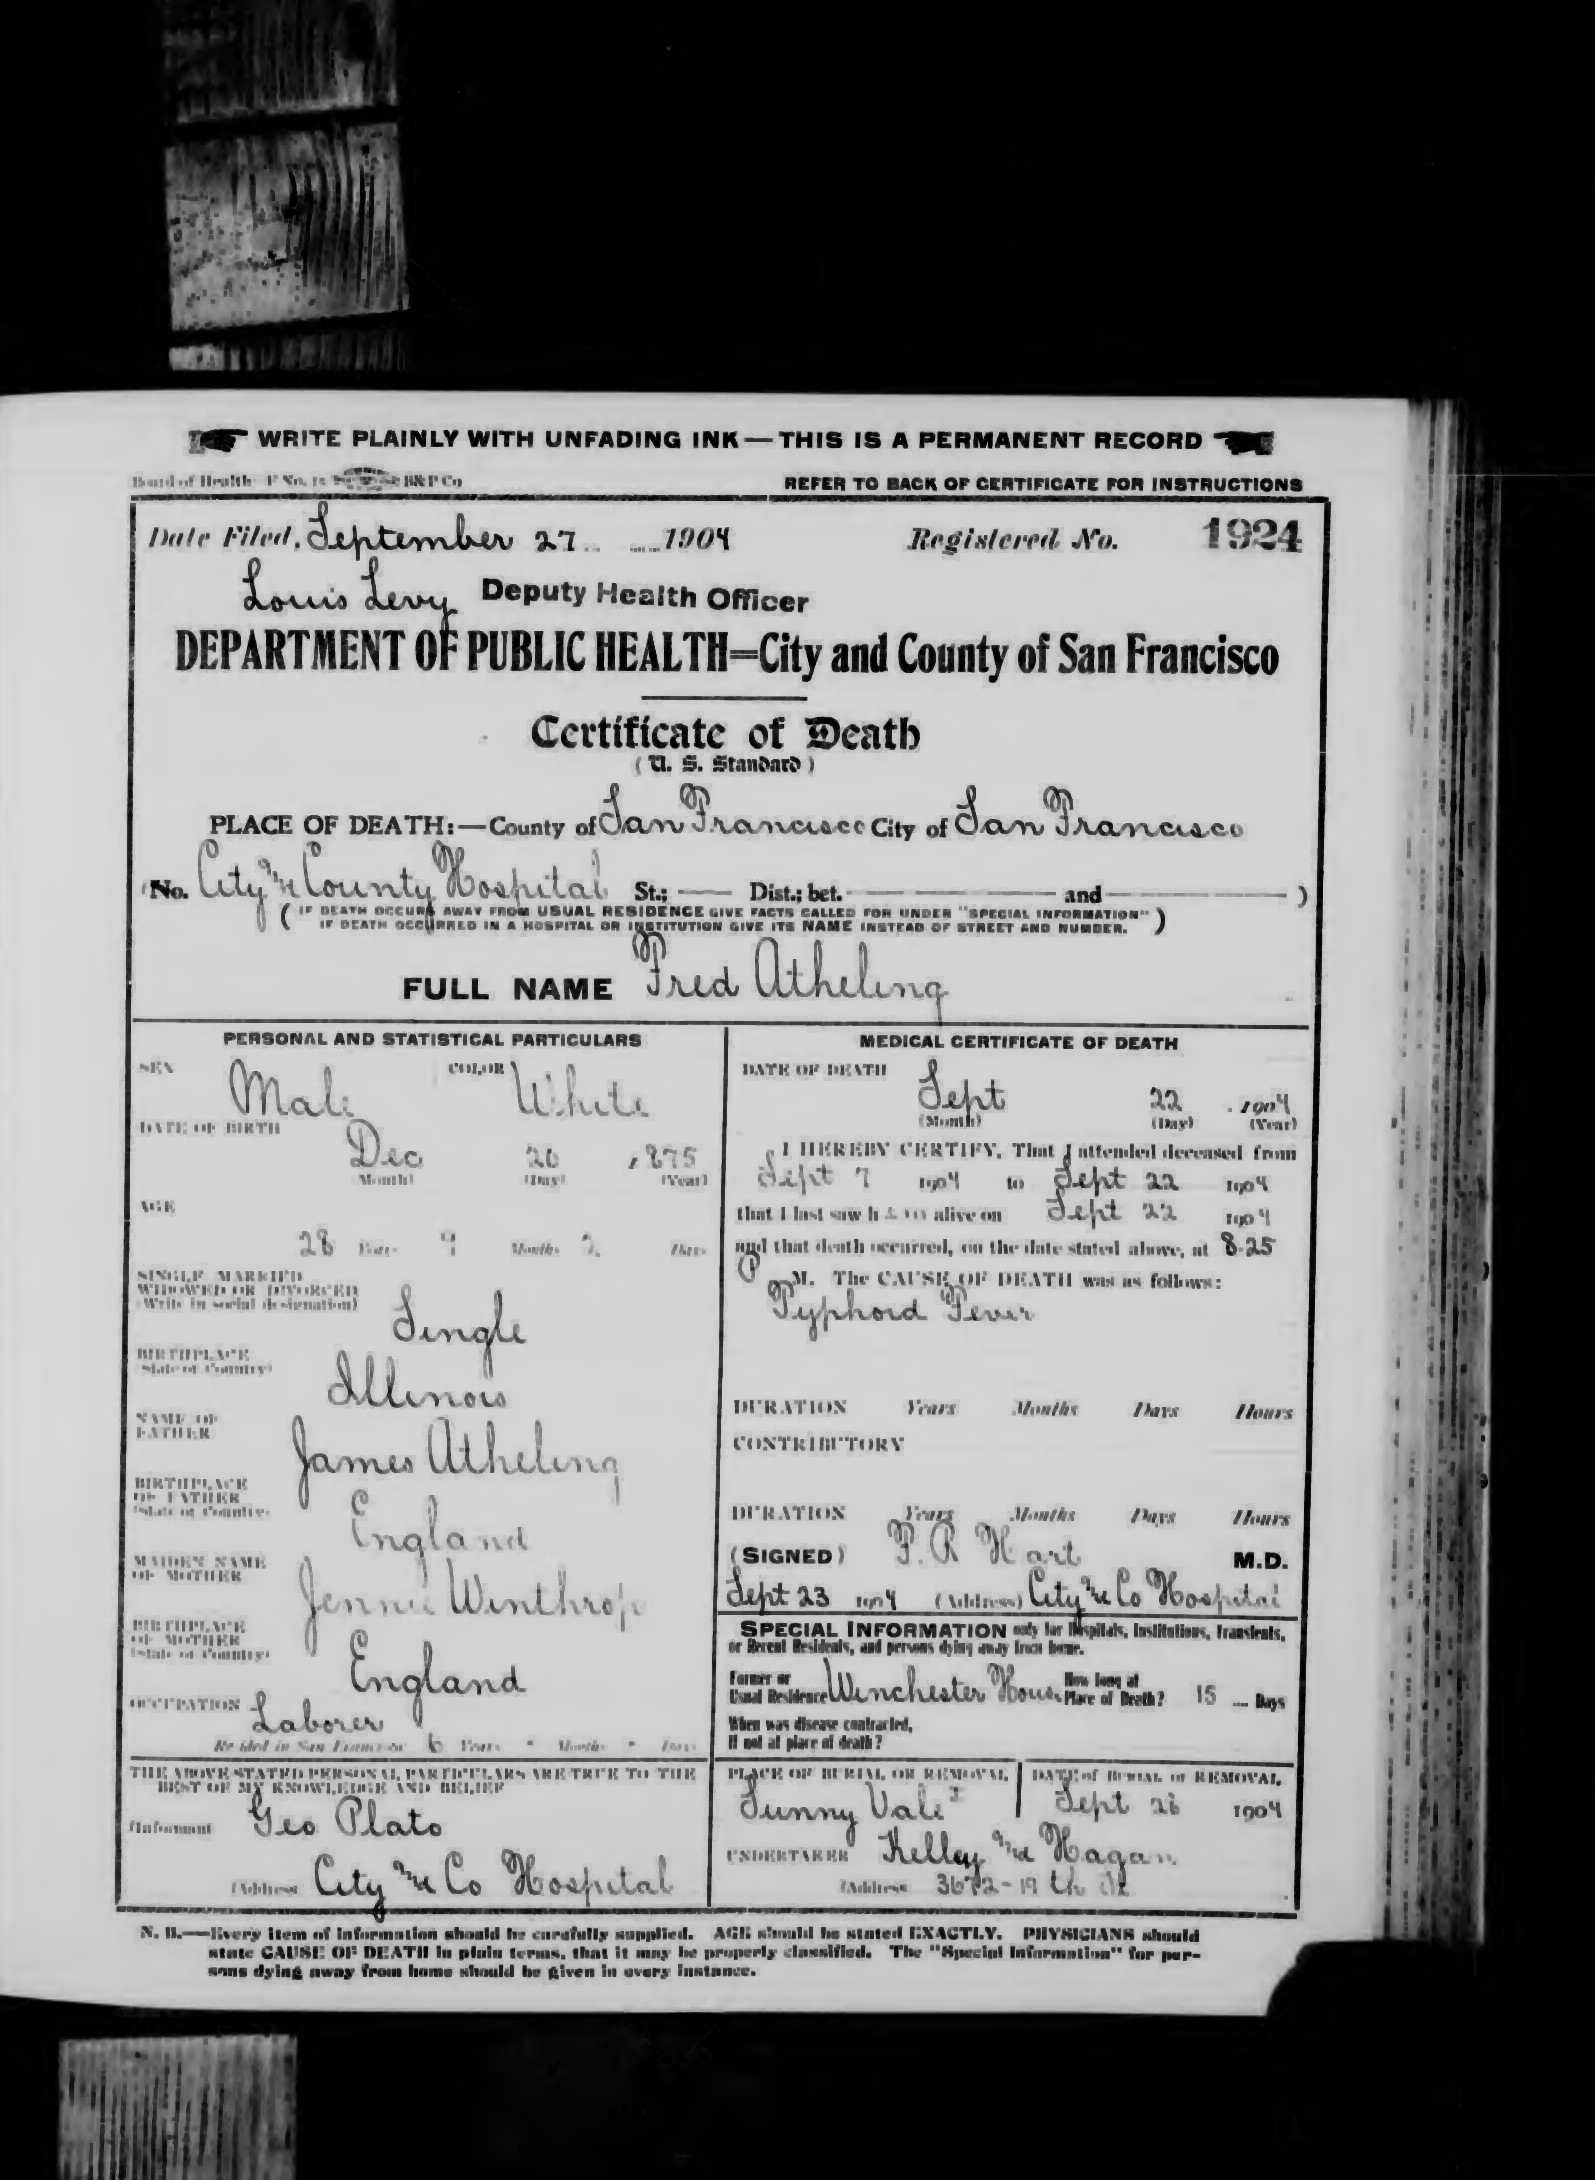 WRITE PLAINLY WITH UNFADING INK — THIS IS A PERMANENT RECORD
Board of Health F No. 15 B&P Co REFER TO BACK OF CERTIFICATE FOR INSTRUCTIONS
Date Filed, September 27 1904 Registered No. 1924
Louis Levy Deputy Health Officer
DEPARTMENT OF PUBLIC HEALTH=City and County of San Francisco
Certificate of Death
( U. S. Standard )
PLACE OF DEATH:—County of San Francisco City of San Francisco
(No. City & County Hospital St.; — Dist.; bet. — and — )
( IF DEATH OCCURS AWAY FROM USUAL RESIDENCE GIVE FACTS CALLED FOR UNDER "SPECIAL INFORMATION" )
IF DEATH OCCURRED IN A HOSPITAL OR INSTITUTION GIVE ITS NAME INSTEAD OF STREET AND NUMBER.
FULL NAME Fred Atheling
PERSONAL AND STATISTICAL PARTICULARS
SEX Male COLOR White
DATE OF BIRTH
Dec 20 1875
(Month) (Day) (Year)
AGE
28 Years 9 Months 2 Days
SINGLE MARRIED
WIDOWED OR DIVORCED
(Write in social designation)
Single
BIRTHPLACE
(State or Country)
Illinois
NAME OF
FATHER
James Atheling
BIRTHPLACE
OF FATHER
(State or Country)
England
MAIDEN NAME
OF MOTHER
Jennie Winthrop
BIRTHPLACE
OF MOTHER
(State or Country)
England
OCCUPATION Laborer
Resided in San Francisco 6 Years - Months - Days
THE ABOVE STATED PERSONAL PARTICULARS ARE TRUE TO THE
BEST OF MY KNOWLEDGE AND BELIEF
(Informant Geo Plato
(Address City & Co Hospital
MEDICAL CERTIFICATE OF DEATH
DATE OF DEATH
Sept 22 1904
(Month) (Day) (Year)
I HEREBY CERTIFY, That I attended deceased from
Sept 7 1904 to Sept 22 1904
that I last saw h im alive on Sept 22 1904
and that death occurred, on the date stated above, at 8-25
P M. The CAUSE OF DEATH was as follows:
Typhoid Fever
DURATION Years Months Days Hours
CONTRIBUTORY
DURATION Years Months Days Hours
(SIGNED) F. R Hart M.D.
Sept 23 1904 (Address) City & Co Hospital
SPECIAL INFORMATION only for Hospitals, Institutions, Transients,
or Recent Residents, and persons dying away from home.
Former or
Usual Residence Winchester House
How long at
Place of Death? 15 Days
When was disease contracted,
If not at place of death?
PLACE OF BURIAL OR REMOVAL
Sunny Vale
DATE of BURIAL or REMOVAL
Sept 1904
UNDERTAKER Kelley & Hagan
(Address 3672-19 th St
N. B.—Every item of information should be carefully supplied. AGE should be stated EXACTLY. PHYSICIANS should
state CAUSE OF DEATH in plain terms, that it may be properly classified. The "Special Information" for per-
sons dying away from home should be given in every instance.